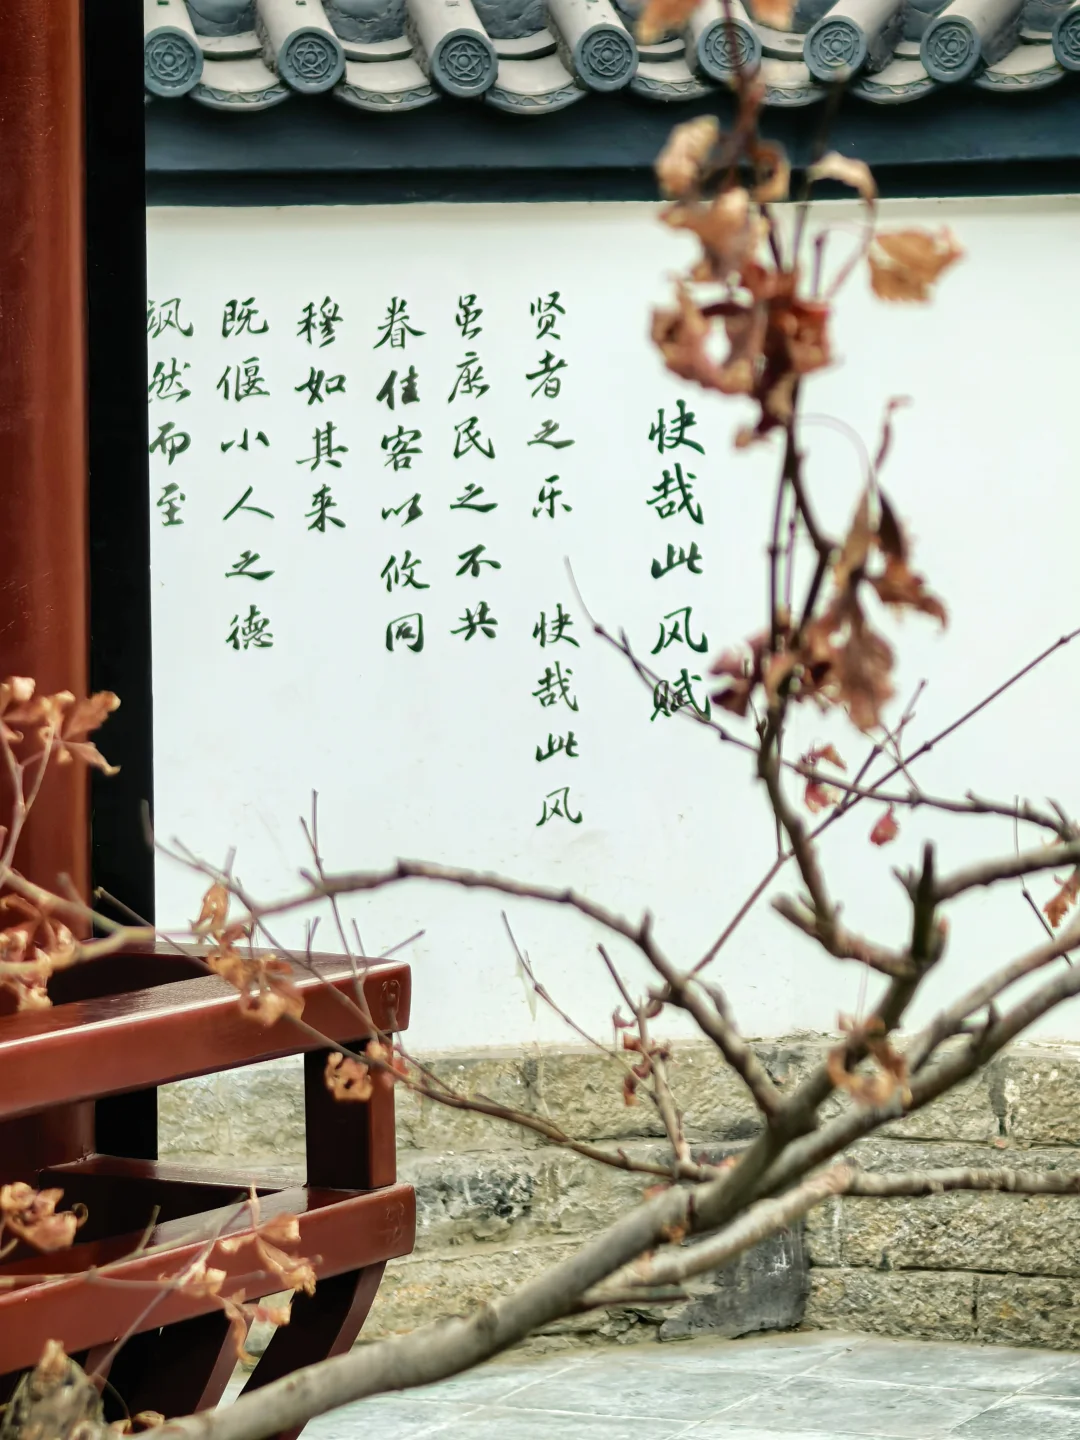 快哉此风赋
贤者之乐 快哉此风
虽庶民之不共
眷佳客以攸同
穆如其来
既偃小人之德
飒然而至